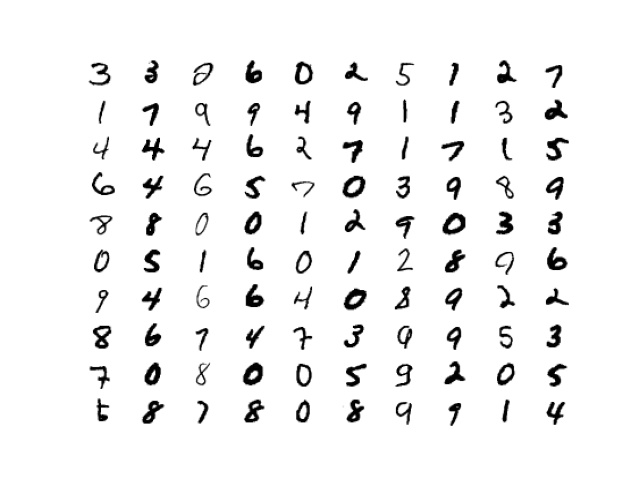 3 3 2 6 0 2 5 1 2 7
1 7 9 9 4 9 1 1 3 2
4 4 4 6 2 7 1 7 1 5
6 4 6 5 7 0 3 9 8 9
8 8 0 0 1 2 9 0 3 3
0 5 1 6 0 1 2 8 9 6
9 4 6 6 4 0 8 9 2 2
8 6 7 4 7 3 9 9 5 3
7 0 8 0 0 5 9 2 0 5
5 8 7 8 0 8 9 9 1 4